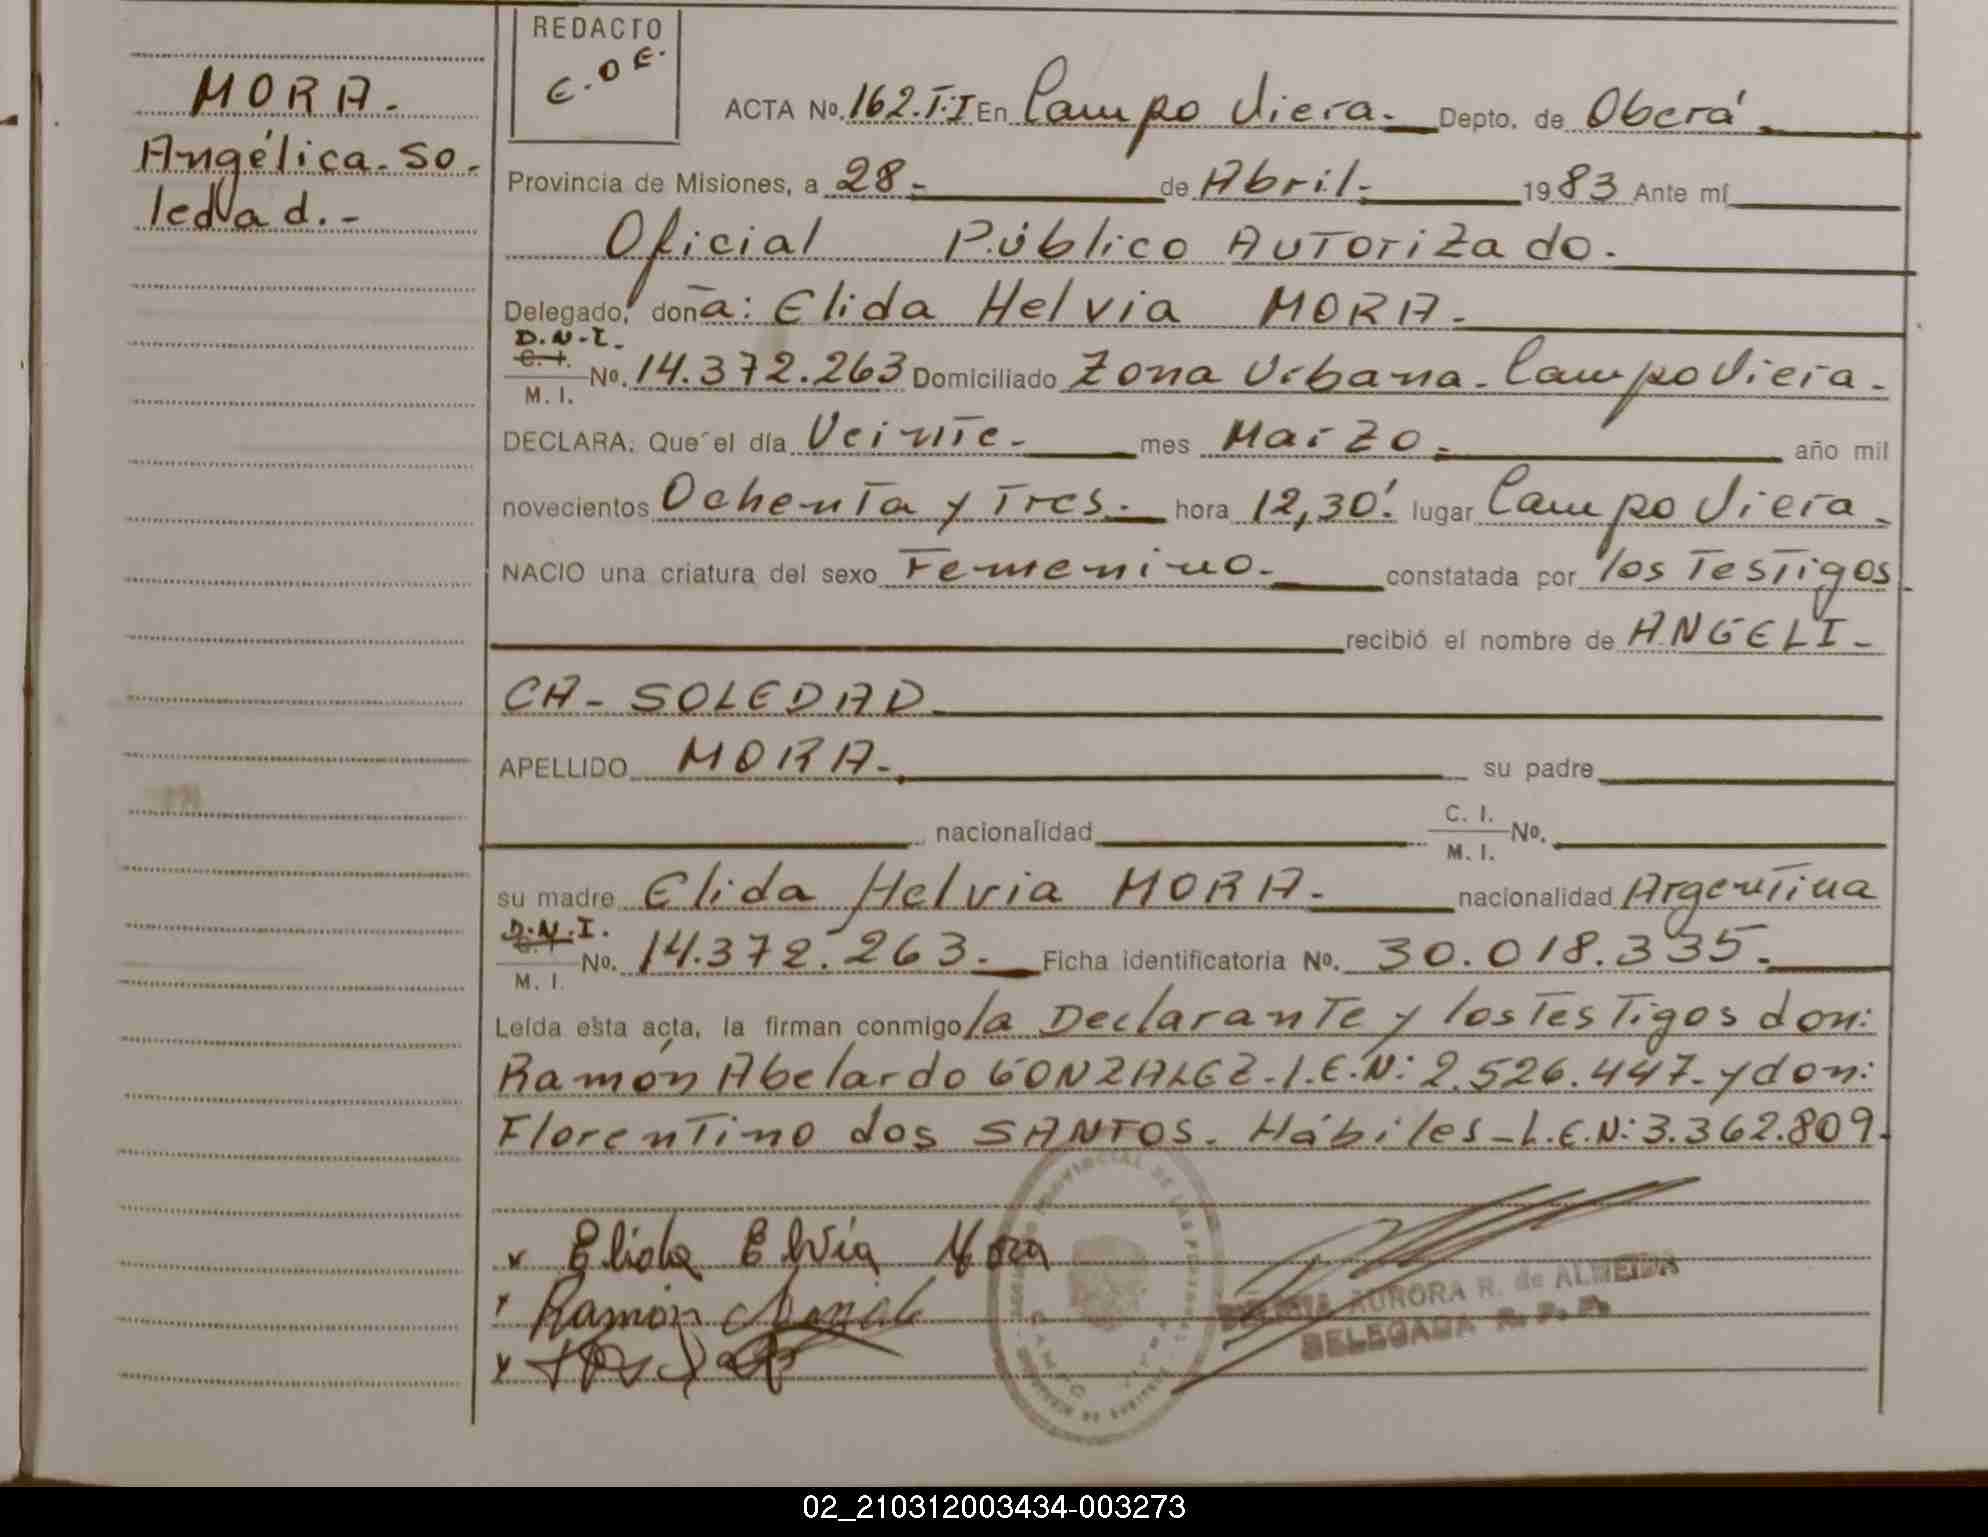 MORA.
Angélica. So.
ledad.-
REDACTO
E.D.E.
ACTA No. 162.T.I En Campo Viera. Depto. de Oberá.
Provincia de Misiones, a 28. de Abril. 1983 Ante mí
Oficial Público Autorizado.
Delegado, doña: Elida Helvia MORA.
D.N.I.
C. I.
M. I. No. 14.372.263 Domiciliado Zona Urbana. Campo Viera.
DECLARA: Que el día Veinte. mes Marzo. año mil
novecientos Ochenta y Tres. hora 12,30'. lugar Campo Viera.
NACIO una criatura del sexo Femenino. constatada por los Testigos
recibió el nombre de ANGELI-
CA- SOLEDAD
APELLIDO MORA. su padre
nacionalidad C. I. M. I. No.
su madre Elida Helvia MORA. nacionalidad Argentina
D.N.I.
C. I.
M. I. No. 14.372.263. Ficha identificatoria No. 30.018.335.
Leída esta acta, la firman conmigo la Declarante y los Testigos don:
Ramón Abelardo GONZALEZ. L.E.N: 2.526.447. y don:
Florentino dos SANTOS. Hábiles - L.E.N: 3.362.809.
x Elida Elvia Mora
Ramón
AURORA R. de ALMEIDA
DELEGADA R. P. P.
02_210312003434-003273